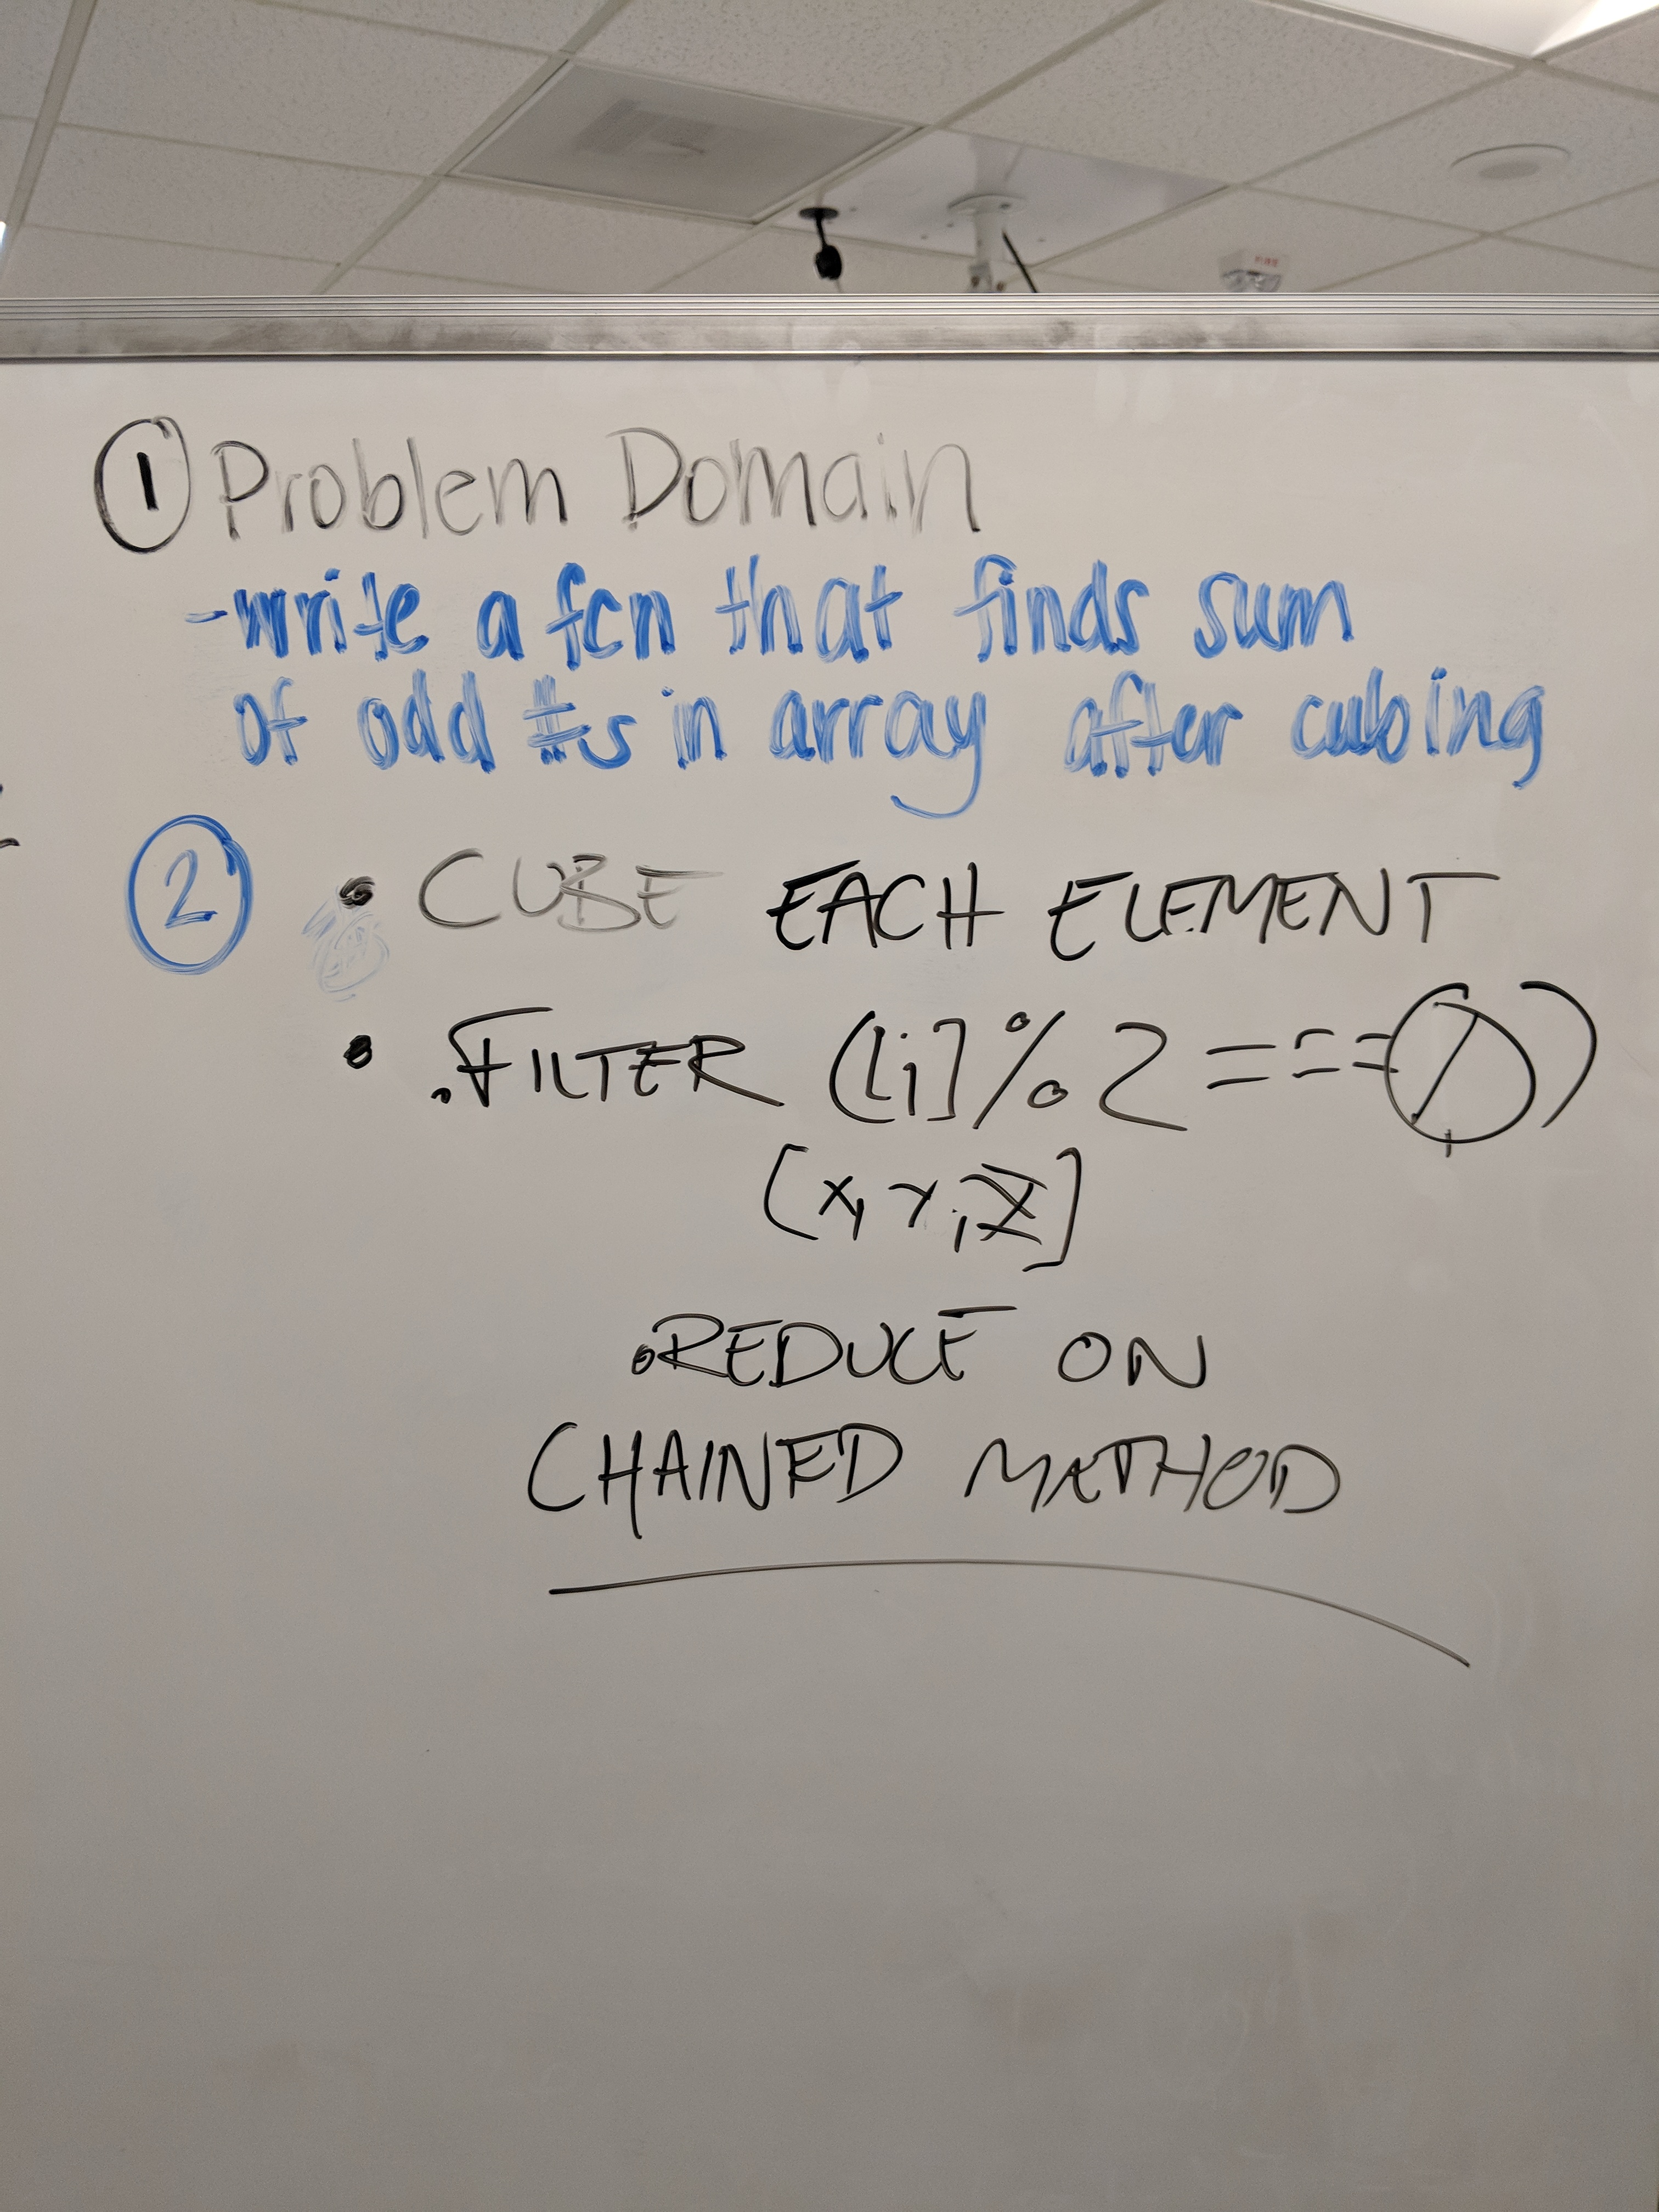 ① Problem Domain
-write a fcn that finds sum
of odd #s in array after cubing
② • CUBE EACH ELEMENT
• .FILTER ([i] % 2 === 0)
[x, y, z]
.REDUCE ON
CHAINED METHOD